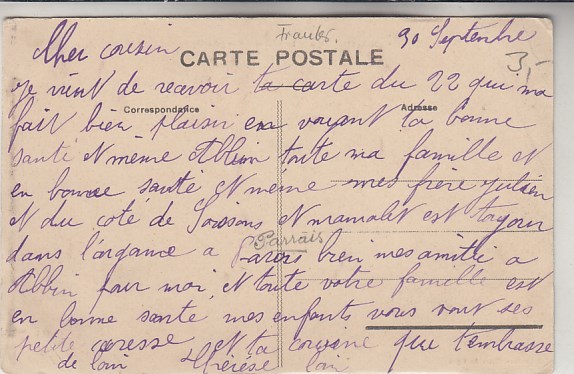 30 Septembre
Cher cousin
CARTE POSTALE
3,-
je vient de reavoir ta carte du 22 qui ma
Correspondance Adresse
fait bien plaisir en voyant ta bonne
santé et même Abbin toute ma famille et
en bonne santé et même mes frère Julien
et du coté de Soissons et est toujour
dans l'argance a Parois bien mes amitié a
Parrais
Abbin pour moi et toute votre famille est
en bonne santé mes enfants vous vont ses
petite caresse et ta cousine que t'embrasse
de loin Thérése